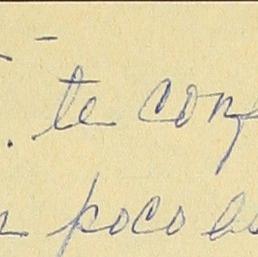 te conf
poco es